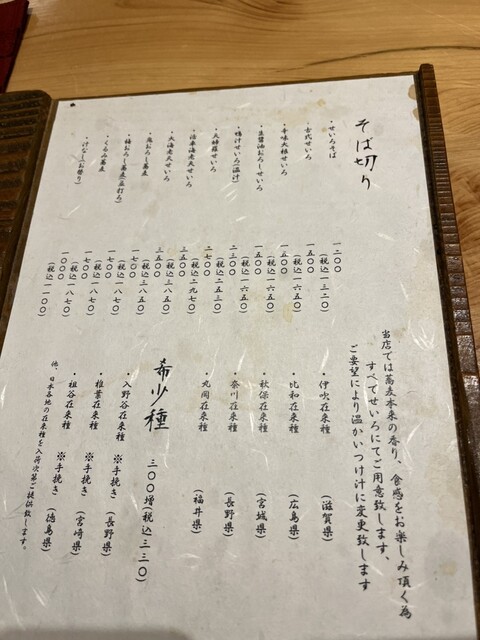 そば切り
・せいろそば 一二〇〇
(税込一三二〇)
・古代せいろ 一五〇〇
(税込一六五〇)
・辛味大根せいろ 一五〇〇
(税込一六五〇)
・生醤油おろしせいろ 一五〇〇
(税込一六五〇)
・鴨汁せいろ(温汁) 二三〇〇
(税込二五三〇)
・天婦羅せいろ 二七〇〇
(税込二九七〇)
・活車海老天せいろ 三五〇〇
(税込三八五〇)
・大海老天せいろ 三五〇〇
(税込三八五〇)
・鬼おろし蕎麦 一七〇〇
(税込一八七〇)
・梅おろし蕎麦 一七〇〇
(税込一八七〇)
・くるみ蕎麦 一七〇〇
(税込一八七〇)
・汁なし(お祭り) 一〇〇〇
(税込一一〇〇)
当店では蕎麦本来の香り、食感をお楽しみ頂く為
すべてせいろにてご用意致します、
ご要望により温かいつけ汁に変更致します
・伊吹在来種 (滋賀県)
・比和在来種 (広島県)
・秋保在来種 (宮城県)
・奈川在来種 (長野県)
・丸岡在来種 (福井県)
希少種 三〇〇増(税込三三〇)
・入野谷在来種 ※手挽き (長野県)
・椎葉在来種 ※手挽き (宮崎県)
・祖谷在来種 ※手挽き (徳島県)
他、日本各地の在来種を入荷次第ご提供致します。